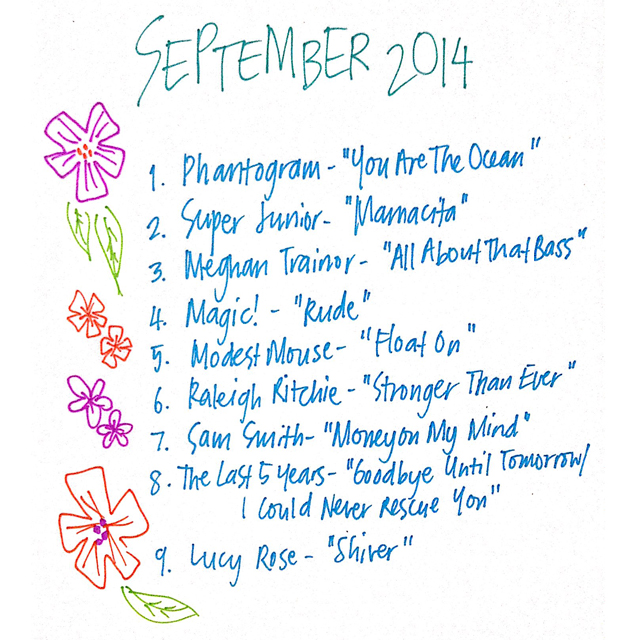 SEPTEMBER 2014
1. Phantogram - "You Are The Ocean"
2. Super Junior - "Mamacita"
3. Meghan Trainor - "All About That Bass"
4. Magic! - "Rude"
5. Modest Mouse - "Float On"
6. Raleigh Ritchie - "Stronger Than Ever"
7. Sam Smith - "Money on My Mind"
8. The Last 5 Years - "Goodbye Until Tomorrow/
I Could Never Rescue You"
9. Lucy Rose - "Shiver"